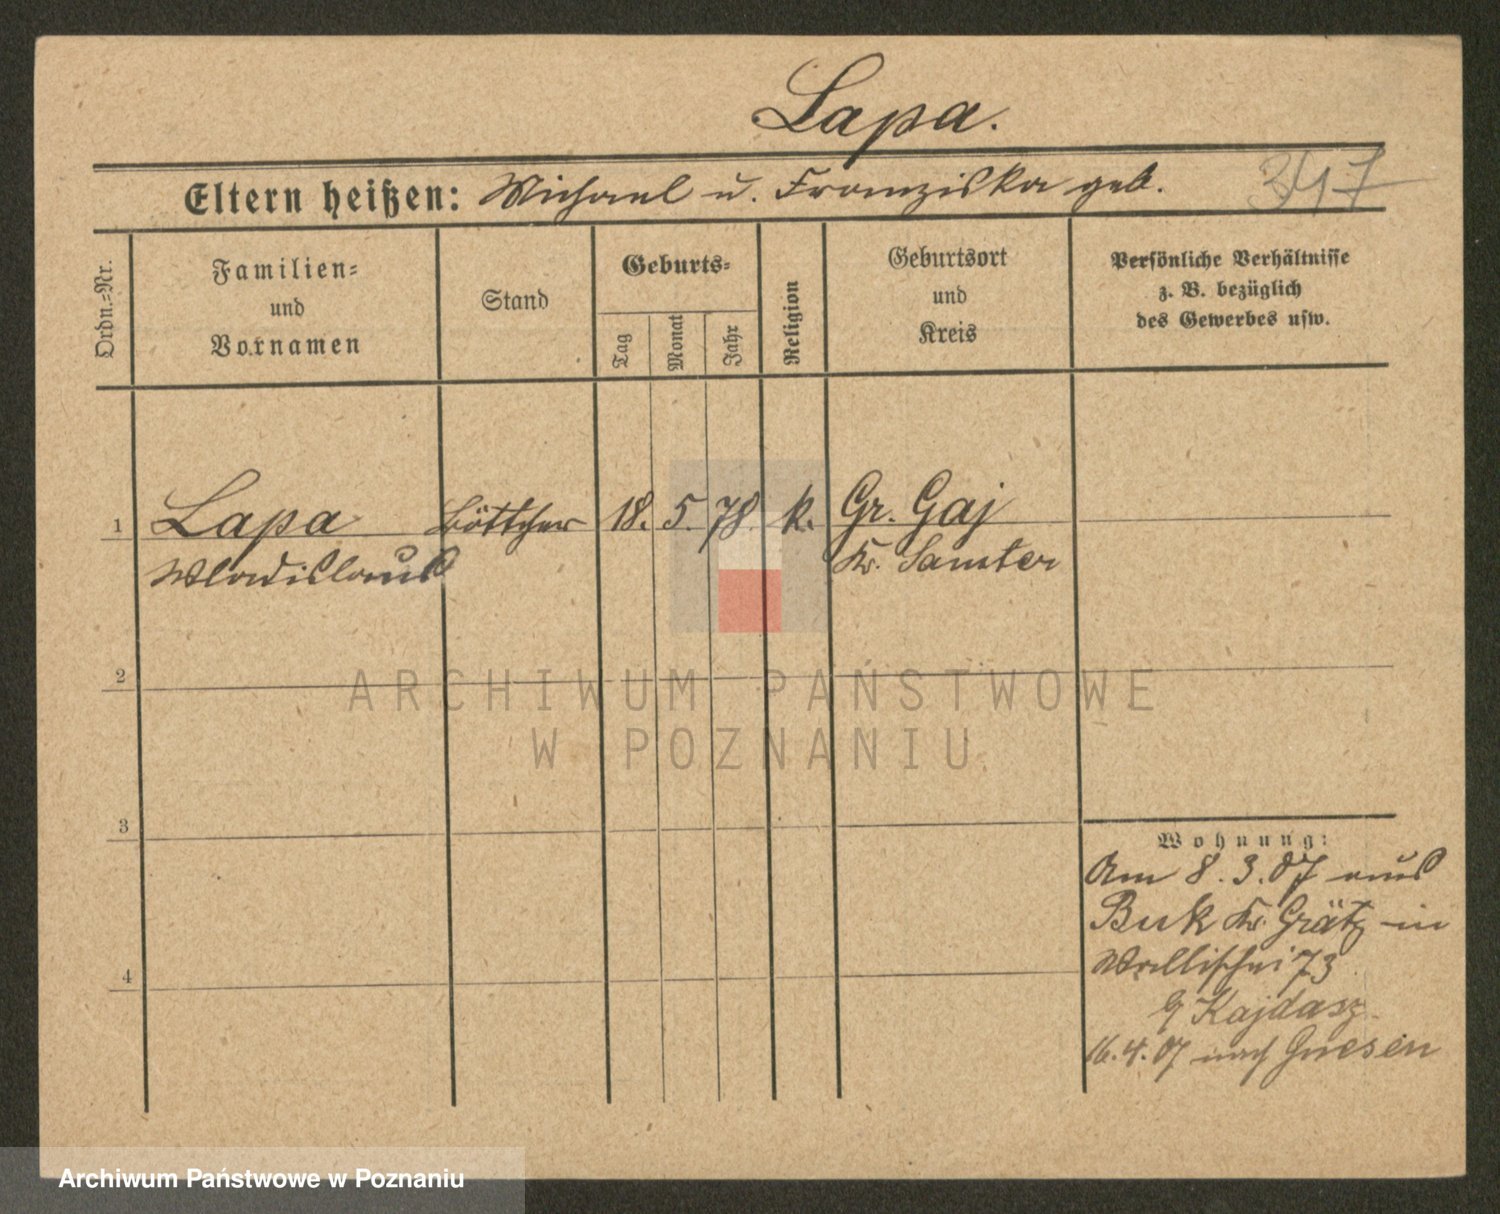 Lapa.
Eltern heißen: Michael u. Franziska geb. 347
Ordn.=Nr.
Familien=
und
Vornamen
Stand
Geburts=
Tag
Monat
Jahr
Religion
Geburtsort
und
Kreis
Persönliche Verhältnisse
z. B. bezüglich
des Gewerbes usw.
1 Lapa Böttcher 18. 5. 78. k. Gr. Gaj
Wladislaus Kr. Samter
2
ARCHIWUM PAŃSTWOWE
W POZNANIU
3
Wohnung:
Am 8.3.07 aus
Buk Kr. Grätz in
Wallischei 73
Kajdasz
4
16.4.07 nach Gnesen
Archiwum Państwowe w Poznaniu